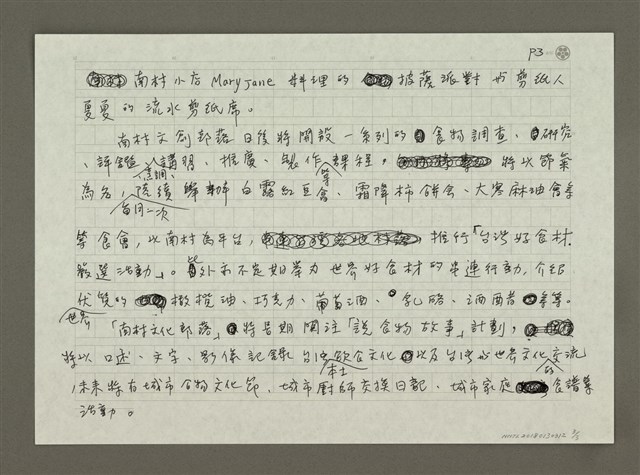 P3
南村小店 Mary jane 料理的披薩派對 與剪紙人
夏夏的流水剪紙席。
南村文創部落日後將開設一系列的食物調查、研究
、評鑑、烹調、講習、推廣、製作等課程。將以節氣
為名,每月一次陸續舉辦白露紅豆會、霜降柿餅會、大寒麻油會等
等食會,以南村為平台,推行「台灣好食材
嚴選活動」。此外亦不定期舉办世界好食材的串連行動,介紹
优質的橄欖油、巧克力、葡萄酒、乳酪、酒醋等等。
「南村世界文化部落」將長期關注「說食物故事」計劃,
將以口述、文字、影像記錄台灣本土飲食文化以及台灣与世界文化的交流
,未來將有城市食物文化節、城市廚師交換日記、城市家庭食譜等
活動。